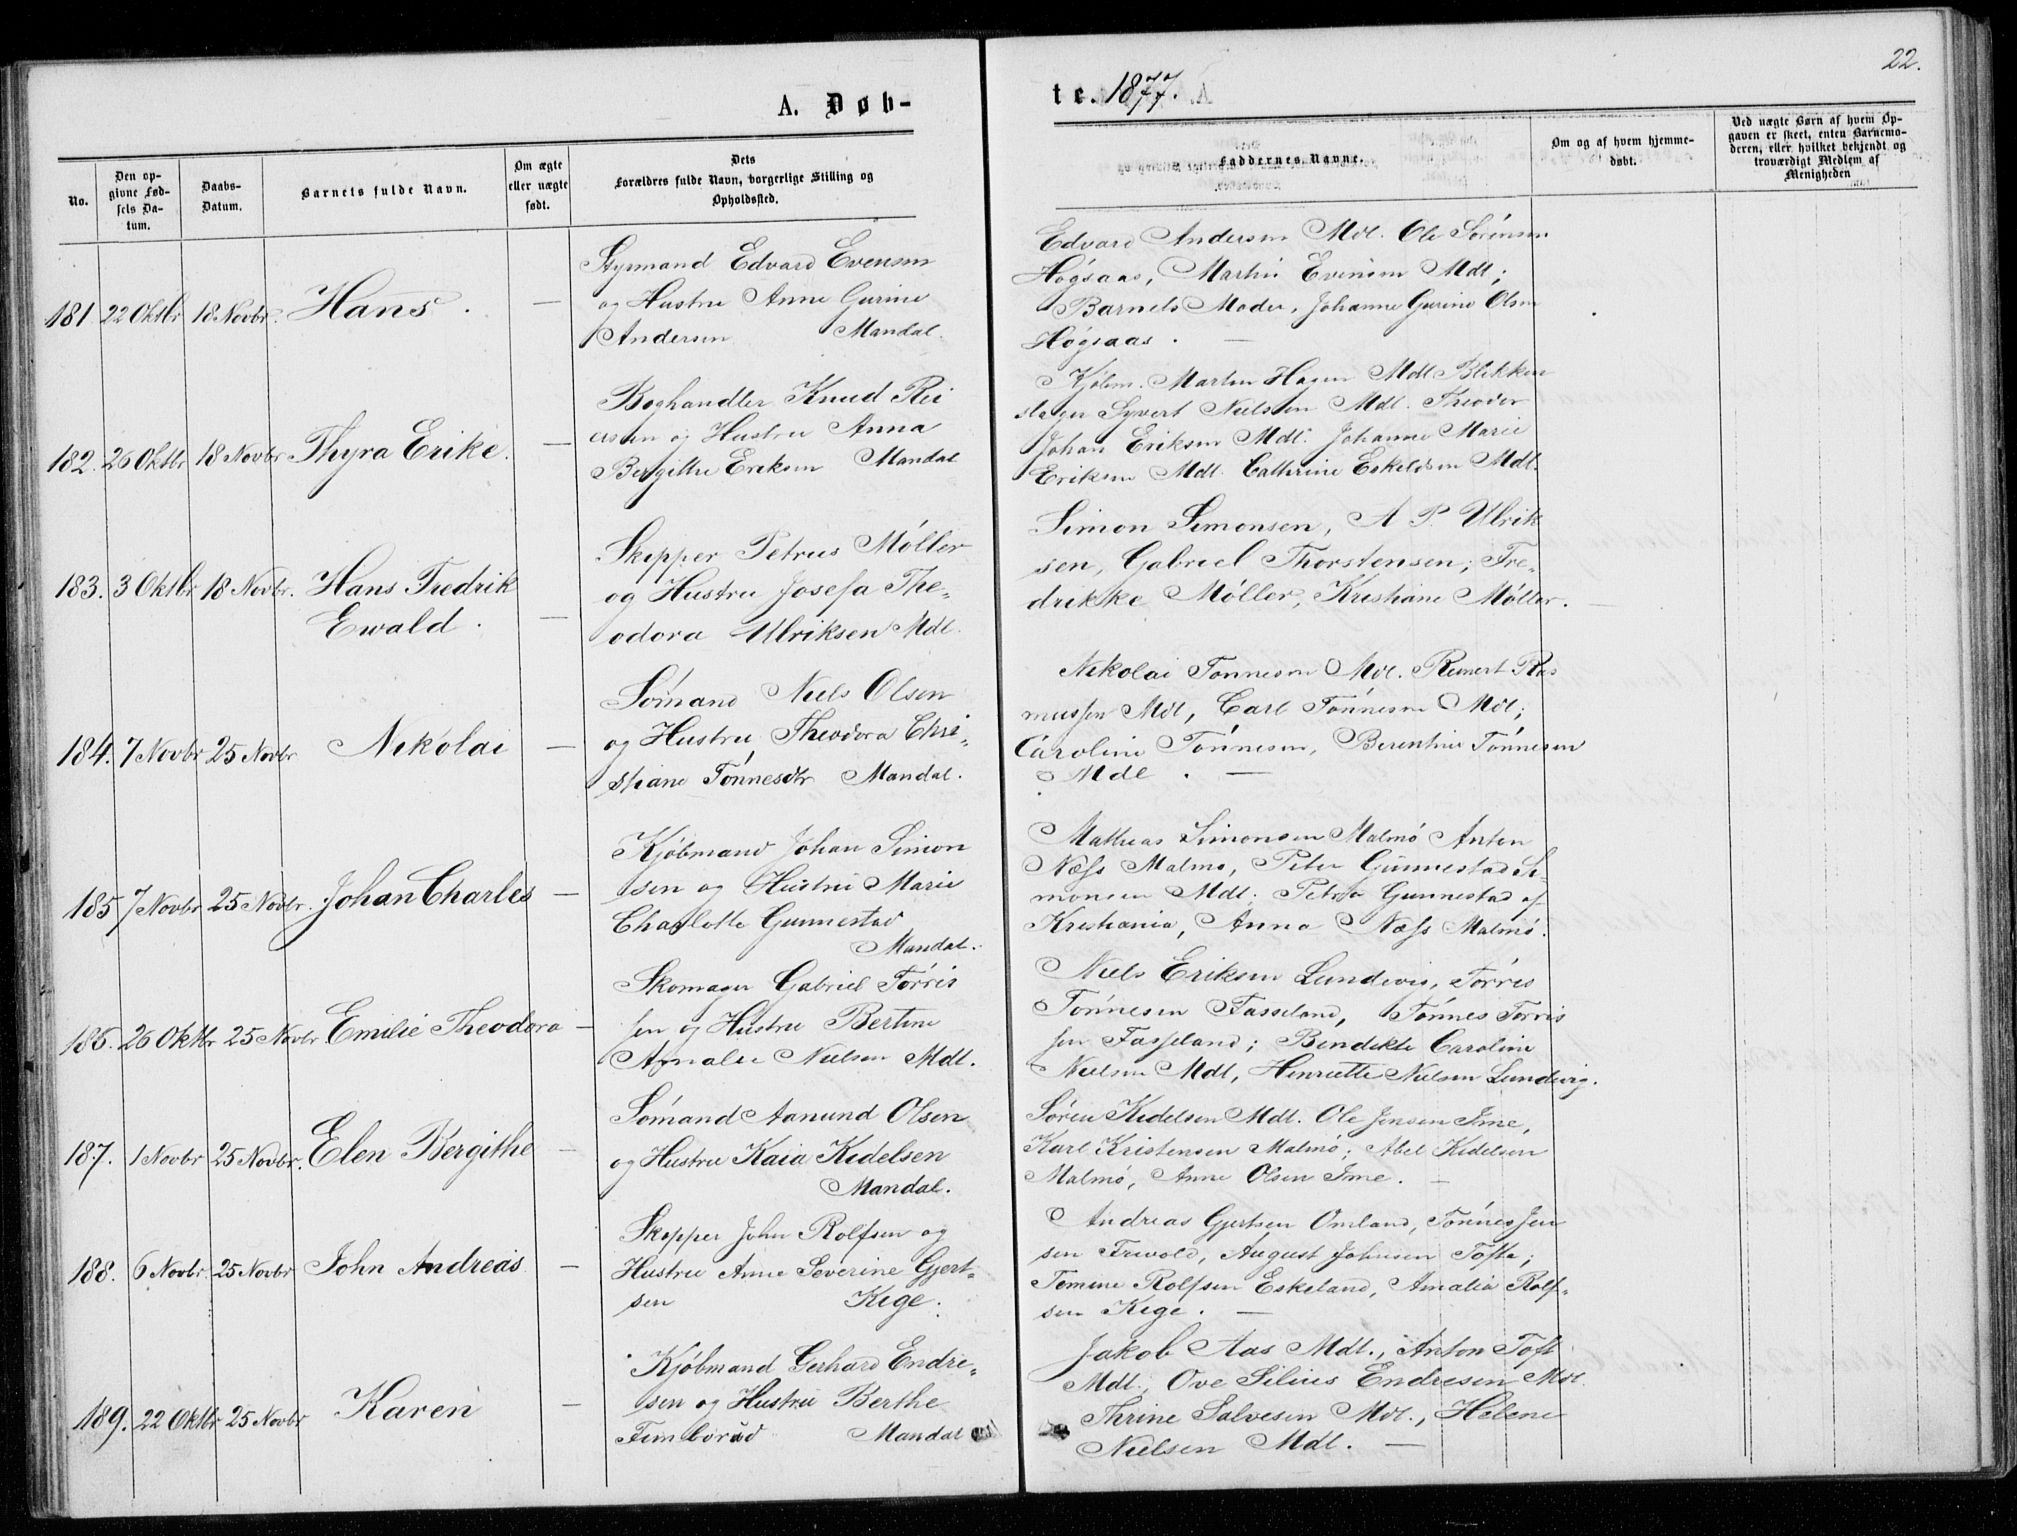 22.
A. Døb-
te. 1877.
No.
Den op-
givne Fød-
sels Da-
tum.
Daabs-
Datum.
Barnets fulde Navn.
Om ægte
eller uægte
født.
Dets
Forældres fulde Navn, borgerlige Stilling og
Opholdssted.
Faddernes Navne.
Om og af hvem hjemme-
døbt.
Ved uægte Børn af hvem Op-
gaven er skeet, enten Barnemo-
deren, eller hvilket bekjendt og
troværdigt Medlem af
Menigheden
181. 22 Oktbr 18 Novbr. Hans. —
Styrmand Edvard Evensen
og Hustru Anne Gurine
Andersen Mandal.
Edvard Andersen Mdl. Ole Sørensen
Høgsaas, Martin Evensen Mdl;
Barnets Moder, Johanne Gurine Olsen
Høgsaas. —
182. 26 Oktbr 18 Novbr Thyra Erike. —
Boghandler Knud Rei
ersen og Hustru Anna
Bergitte Eriksen Mandal
Kjøbm. Martin Hagen Mdl Blikken
slager Syvert Nielsen Mdl. Theodor
Johan Eriksen Mdl. Johanne Marie
Eriksen Mdl. Cathrine Eskeldsen Mdl.
183. 3 Oktbr 18 Novbr. Hans Fredrik
Ewald. —
Skipper Petrus Møller
og Hustru Josefa The-
odora Ulriksen Mdl.
Simon Simonsen, A P. Ulrik
sen, Gabriel Thorstensen; Fre-
drikke Møller, Kristiane Møller. —
184. 7 Novbr 25 Novbr Nikolai —
Sømand Niels Olsen
og Hustru Theodora Chri-
stiane Tønnesdtr Mandal.
Nikolai Tønnesen Mdl. Reinert Ras
mussen Mdl, Carl Tønnesen Mdl;
Caroline Tønnesen, Berentine Tønnesen
Mdl. —
185 7 Novbr 25 Novbr. Johan Charles —
Kjøbmand Johan Simon
sen og Hustru Marie
Charlotte Gunnestad
Mandal.
Mathias Simonsen Malmø Anton
Næss Malmø, Peter Gunnestad Si-
monsen Mdl; Petra Gunnestad af
Kristiania, Anna Næss Malmø.
186. 26 Oktbr 25 Novbr Emilie Theodora —
Skomager Gabriel Tørris
sen og Hustru Bertine
Amalie Nielsen Mdl.
Niels Eriksen Lundevig, Tørres
Tønnesen Fasseland, Tønnes Tørris
sen Fasseland; Bendikte Caroline
Nielsen Mdl, Henriette Nielsen Lundevig.
187. 1 Novbr 25 Novbr. Elen Bergithe —
Sømand Aanund Olsen
og Hustru Kaia Kidelsen
Mandal.
Søren Kidelsen Mdl. Ole Jensen Ime,
Karl Kristensen Malmø; Abel Kidelsen
Malmø, Anne Olsen Ime. —
188. 6 Novbr. 25 Novbr John Andreas —
Skipper John Rolfsen og
Hustru Anne Severine Gjert-
sen Kige.
Andreas Gjertsen Omland, Tønnes Jen
sen Frivold, August Johnsen Tofte;
Temine Rolfsen Eskeland, Amalia Rolf-
sen Kige. —
189. 22 Oktbr 25 Novbr Karen —
Kjøbmand Gerhard Endre-
sen og Hustru Berthe
Fimborud Mandal
Jakob Aas Mdl., Anton Toft
Mdl; Ove Silius Endresen Mdl
Thrine Salvesen Mdl., Helene
Nielsen Mdl. —